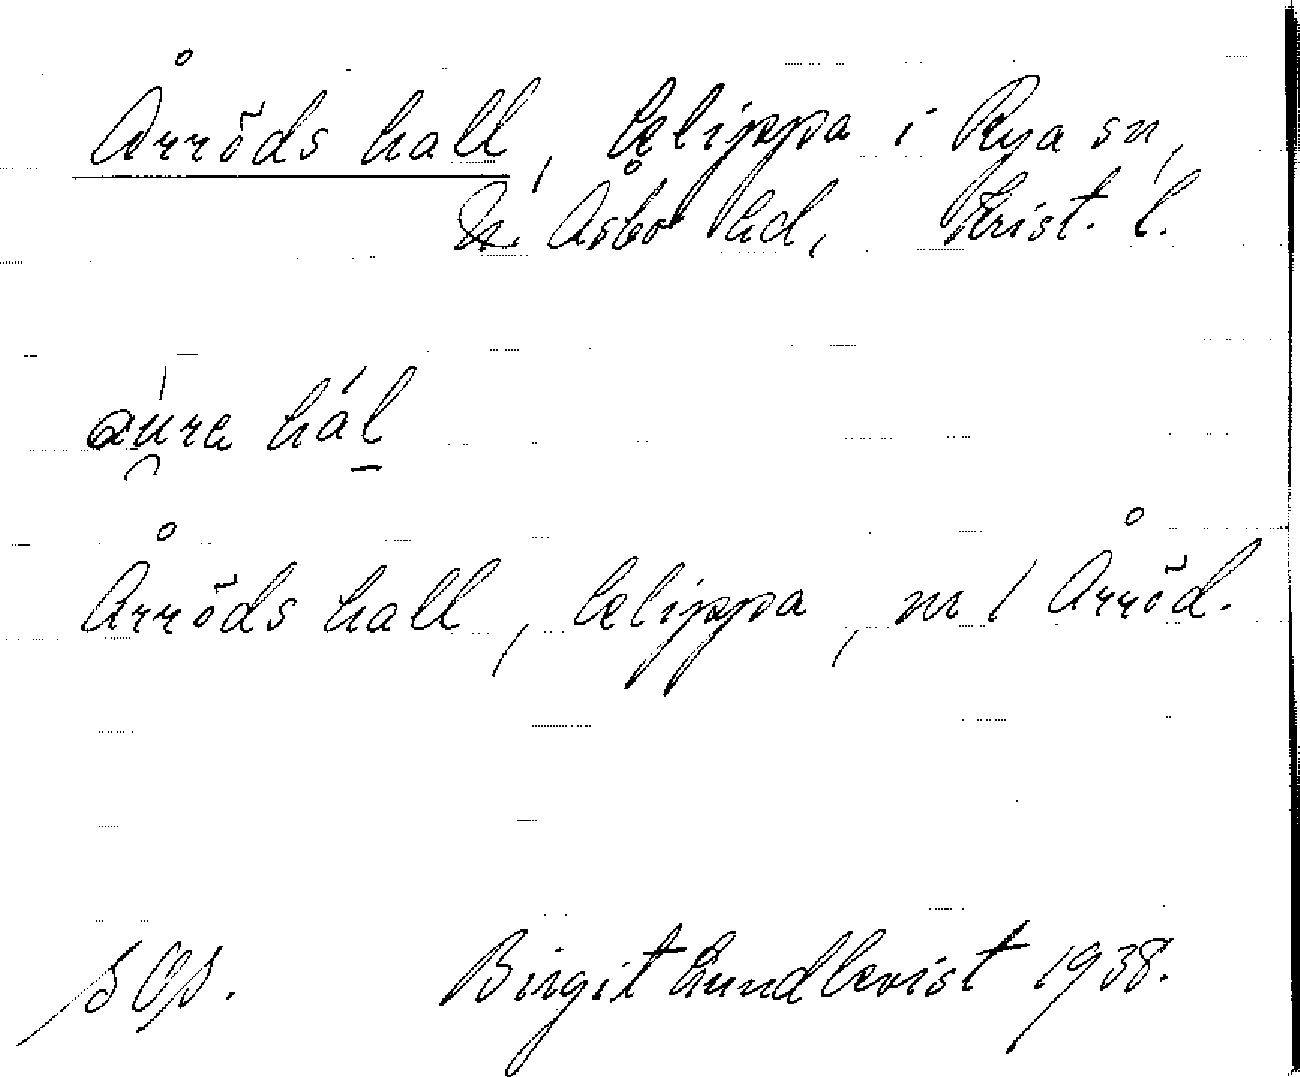 Årröds hall, klippa i Rya sn,
N. Åsbo hd, Krist. l.
hál
Årröds hall, klippa, nr 1 Årröd.
Birgit Lundkvist 1938.